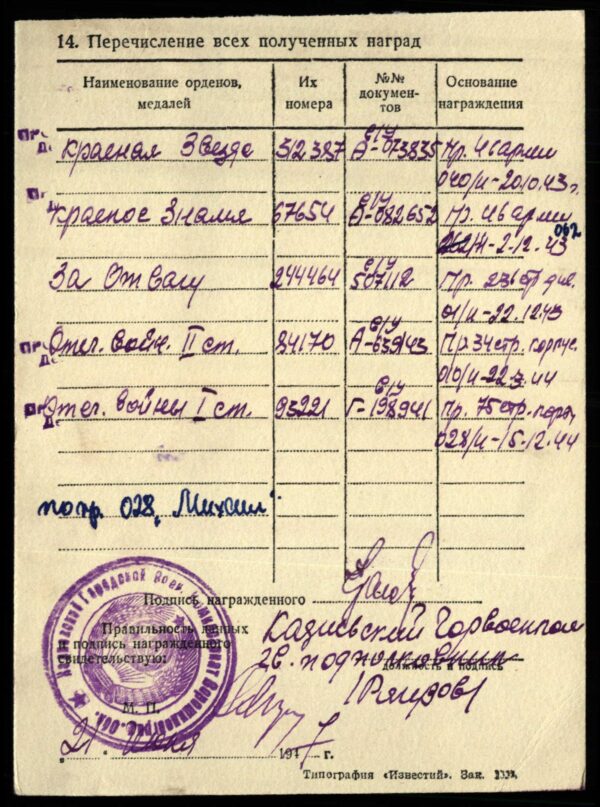 14. Перечисление всех полученных наград
Наименование орденов, медалей
Их номера
№№ документов
Основание награждения
Красная Звезда 312387 А-073835 Пр. 46 армии
040/н-20.10.43г.
Красное Знамя 67654 А-082652 Пр. 46 армии
/н-2-12.43 062
За Отвагу 244464 507112 Пр. 236 стр див.
01/н-22.12.43
Отеч. войн. II ст. 84170 А-639143 Пр. 34 стр. корпус.
010/н-22.3.44
Отеч. войны I ст. 93221 Г-198941 Пр. 75 стр. корп.
028/н-15.12.44
по пр. 028 „Михаил“
Подпись награжденного
Правильность данных
и подпись награжденного
свидетельствую:
Кадиевский Горвоенком
гв. подполковник
должность и подпись
М. П.
21 июня 1947 г.
Типография «Известий». Зак.